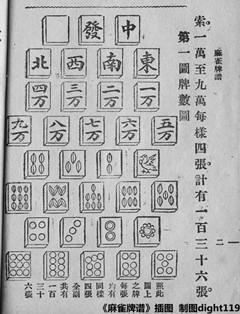 麻雀牌譜
二
索一萬至九萬每樣四張計有一百三十六張。
第一圖牌數圖
中
發
東
南
西
北
一万
二万
三万
四万
五万
六万
七万
八万
九万
照此
圖上
之牌
每張
均有
同樣
四張
全副
共有
一百
三十
六張
《麻雀牌谱》插图 制图dight119